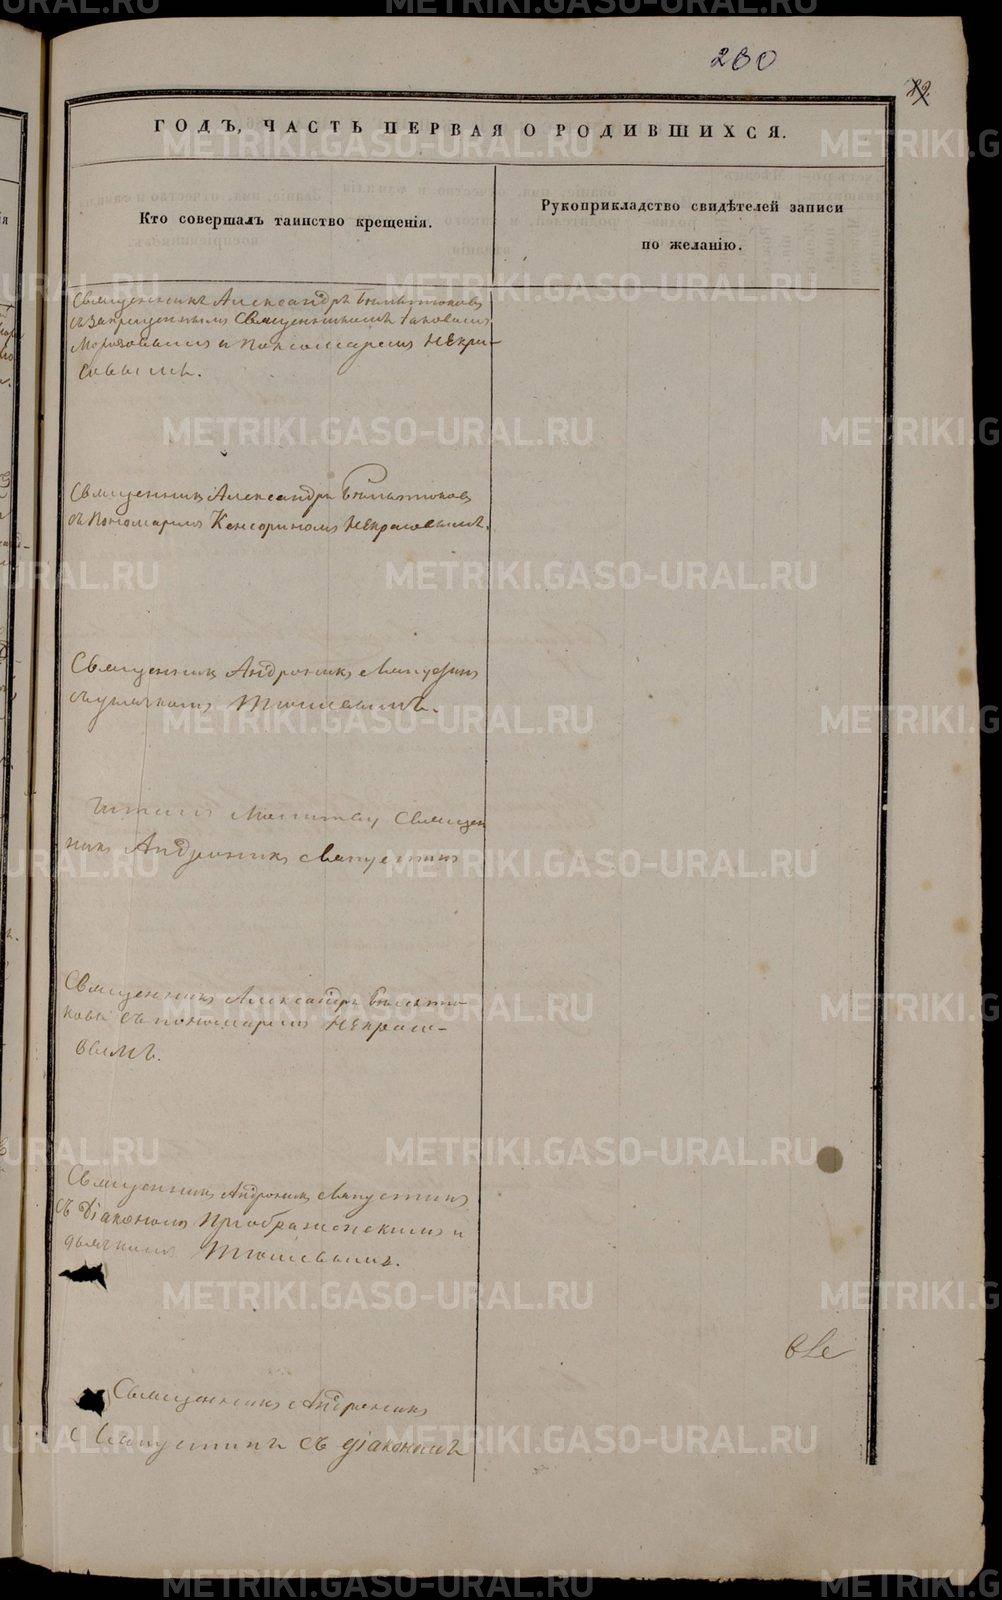 280
ГОДЪ, ЧАСТЬ ПЕРВАЯ О РОДИВШИХСЯ.
Кто совершалъ таинство крещенія.
Рукоприкладство свидѣтелей записи
по желанію.
Священникъ Александръ
съ запрещеннымъ Священникомъ Іаковомъ
Морозовымъ и пономаремъ Некра-
совымъ.
Священникъ Александръ
съ пономаремъ Кенсориномъ Некрасовымъ.
Священникъ Андроникъ
съ дьячкомъ
Читалъ молитву Священ
никъ Андроникъ
Священникъ Александръ
съ пономаремъ Некрасо-
вымъ.
Священникъ Андроникъ
съ Діакономъ Преображенскимъ и
дьячкомъ
Священникъ Андроникъ
съ діакономъ
METRIKI.GASO-URAL.RU